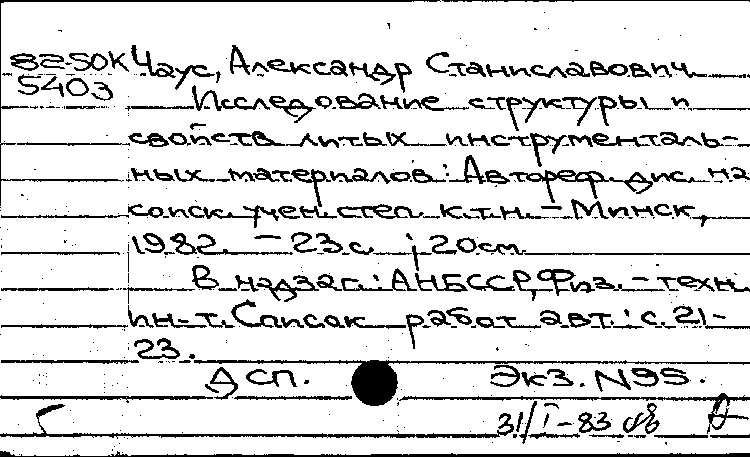 82-50К Чаус, Александр Станиславович.
5403
Исследование структуры и
свойств литых инструменталь-
ных материалов: Автореф. дис. на
соиск. учен. степ. к.т.н. - Минск,
1982. - 23 с. ; 20 см.
В надзаг.: АН БССР, Физ.-техн.
ин-т. Список работ авт.: с. 21-
23.
ДСП. Экз. N95.
31/I-83